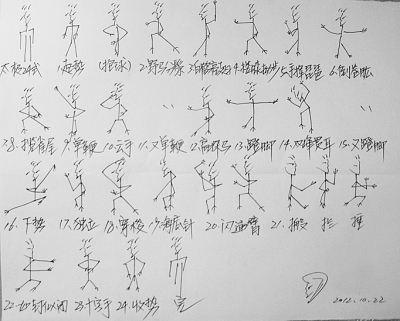 太极24式 1.起势 (抱球) 2.野马分鬃 3.白鹤亮翅 4.搂膝拗步 5.手挥琵琶 6.倒卷肱
7.8.揽雀尾 9.单鞭 10.云手 11.又单鞭 12.高探马 13.蹬脚 14.双峰贯耳 15.又蹬脚
16.下势 17.独立 18.穿梭 19.海底针 20.闪通臂 21.搬 拦 捶
22.如封似闭 23.十字手 24.收势 完 2012.10.22